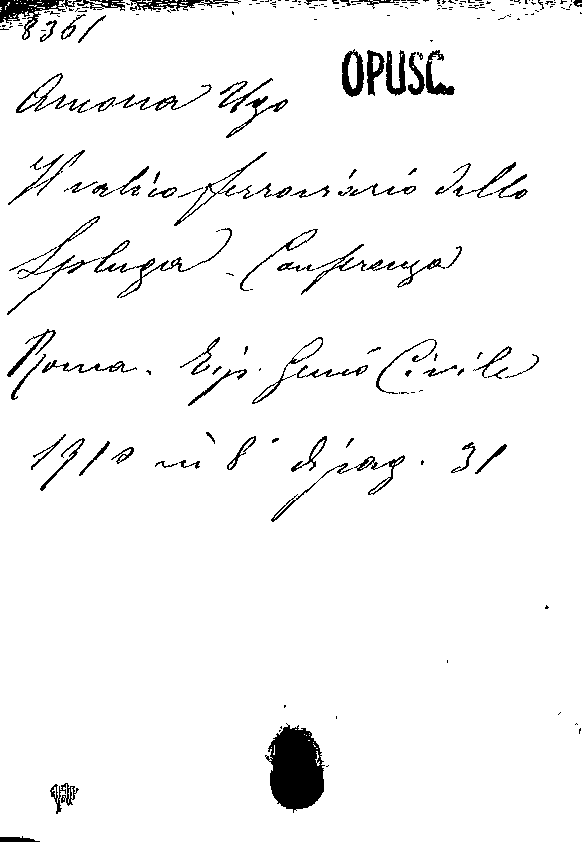 8361
OPUSC.
Ancona Ugo
Il valico ferroviario dello
Spluga - Conferenza
Roma. Tip. Genio Civile
1910 in 8° di pag. 31